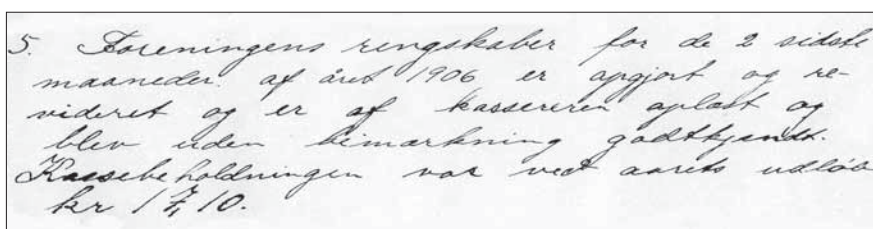 5. Foreningens rengskaber for de 2 sidste
maaneder. af året 1906 er opgjort og re-
videret og er af kassereren oplæst og
blev uden bimærkning godtkjendt.
Kassebeholdningen var ved aarets udløb
kr 17,10.